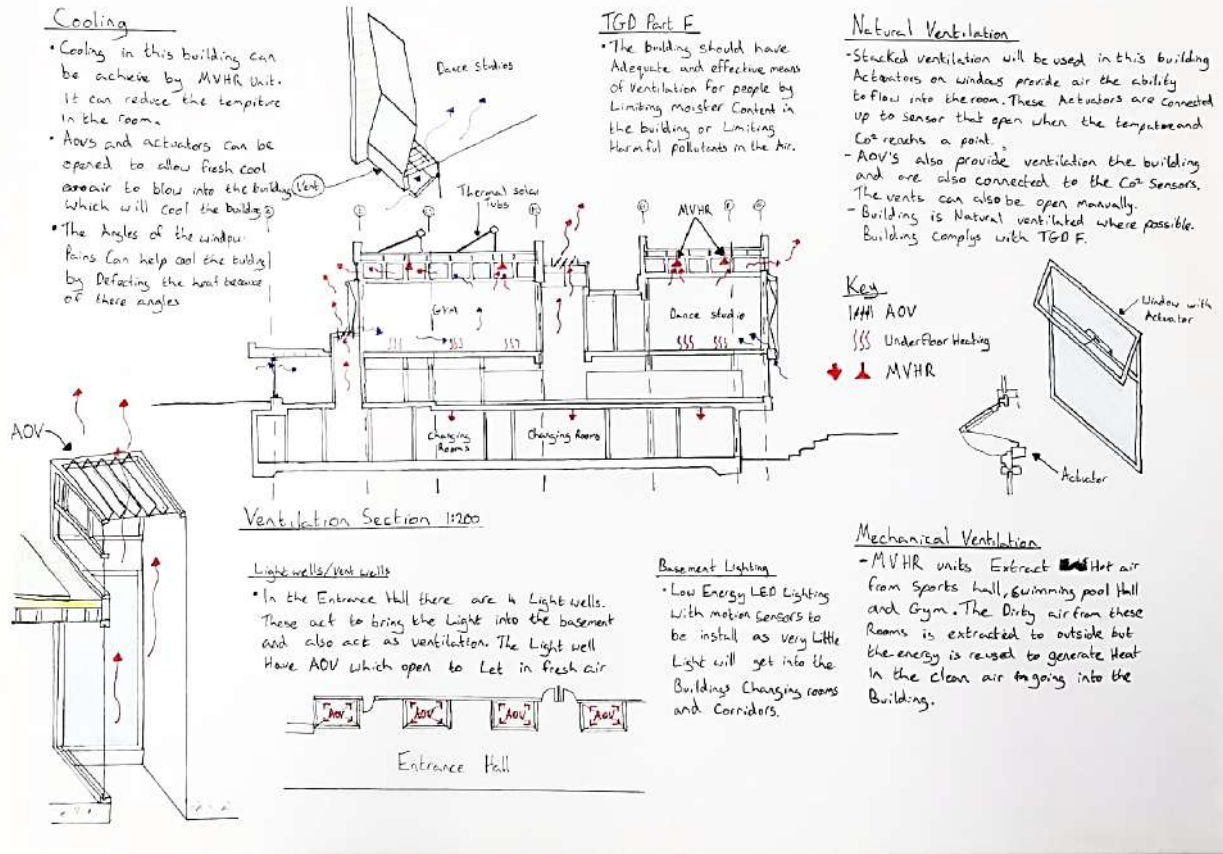 Cooling
• Cooling in this building can
be achieve by MVHR Unit.
It can reduce the tempiture
in the room.
• Aovs and actuators can be
opened to allow fresh cool
air to blow into the building
which will cool the building
• The Angles of the window
Pains Can help cool the building
by Defecting the heat because
of there angles
Dance studios
Vent
TGD Part F
• The building should have
Adequate and effective means
of Ventilation for people by
Limiting moister Content in
the building or Limiting
Harmful pollutants in the Air.
Natural Ventilation
- Stacked ventilation will be used in this building
Actuators on windows provide air the ability
to flow into the room. These Actuators are connected
up to sensor that open when the tempature and
Co² reachs a point.
- AOV's also provide ventilation the building
and are also connected to the Co² Sensors.
The vents can also be open manually.
- Building is Natural ventilated where possible.
Building Complys with TGD F.
Key
AOV
UnderFloor Heating
MVHR
Window with
Actuator
Actuator
Thermal solar
Tubs
MVHR
GYM
Dance studio
Changing
Rooms
Changing Rooms
AOV
Ventilation Section 1:200
Light wells/vent wells
• In the Entrance Hall there are 4 Light wells.
These act to bring the Light into the basement
and also act as ventilation. The Light well
Have AOV which open to Let in fresh air
AOV AOV AOV AOV
Entrance Hall
Basement Lighting
• Low Energy LED Lighting
with motion sensors to
be install as very Little
Light will get into the
Buildings Changing rooms
and Corridors.
Mechanical Ventilation
- MVHR units Extract Hot air
from Sports hall, Swimming pool Hall
and Gym. The Dirty air from these
Rooms is extracted to outside but
the energy is reused to generate Heat
In the clean air going into the
Building.